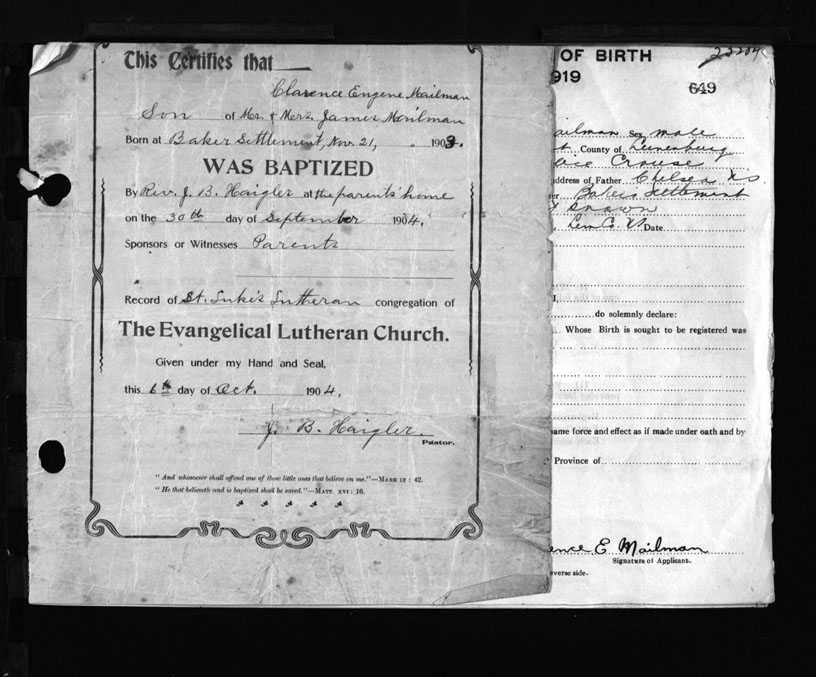 This Certifies that
Clarence Eugene Mailman
Son of Mr. & Mrs. James Mailman
Born at Baker Settlement, Nov. 21, 1903.
WAS BAPTIZED
By Rev. J. B. Haigler at the parents' home
on the 30th day of September 1904,
Sponsors or Witnesses Parents
Record of St. Luke's Lutheran congregation of
The Evangelical Lutheran Church.
Given under my Hand and Seal,
this 6th day of Oct. 1904,
J. B. Haigler.
Pastor.
"And whosoever shall offend one of these little ones that believe on me."—MARK IX : 42.
"He that believeth and is baptized shall be saved."—MATT. XVI : 16.
OF BIRTH
919
649
ailman Sex male
County of Lunenburg
Crouse
address of Father Chelsea NS
Bakers Settlement
Lun Co. NS Date
do solemnly declare:
Whose Birth is sought to be registered was
ame force and effect as if made under oath and by
Province of
ence E Mailman
Signature of Applicant.
everse side.